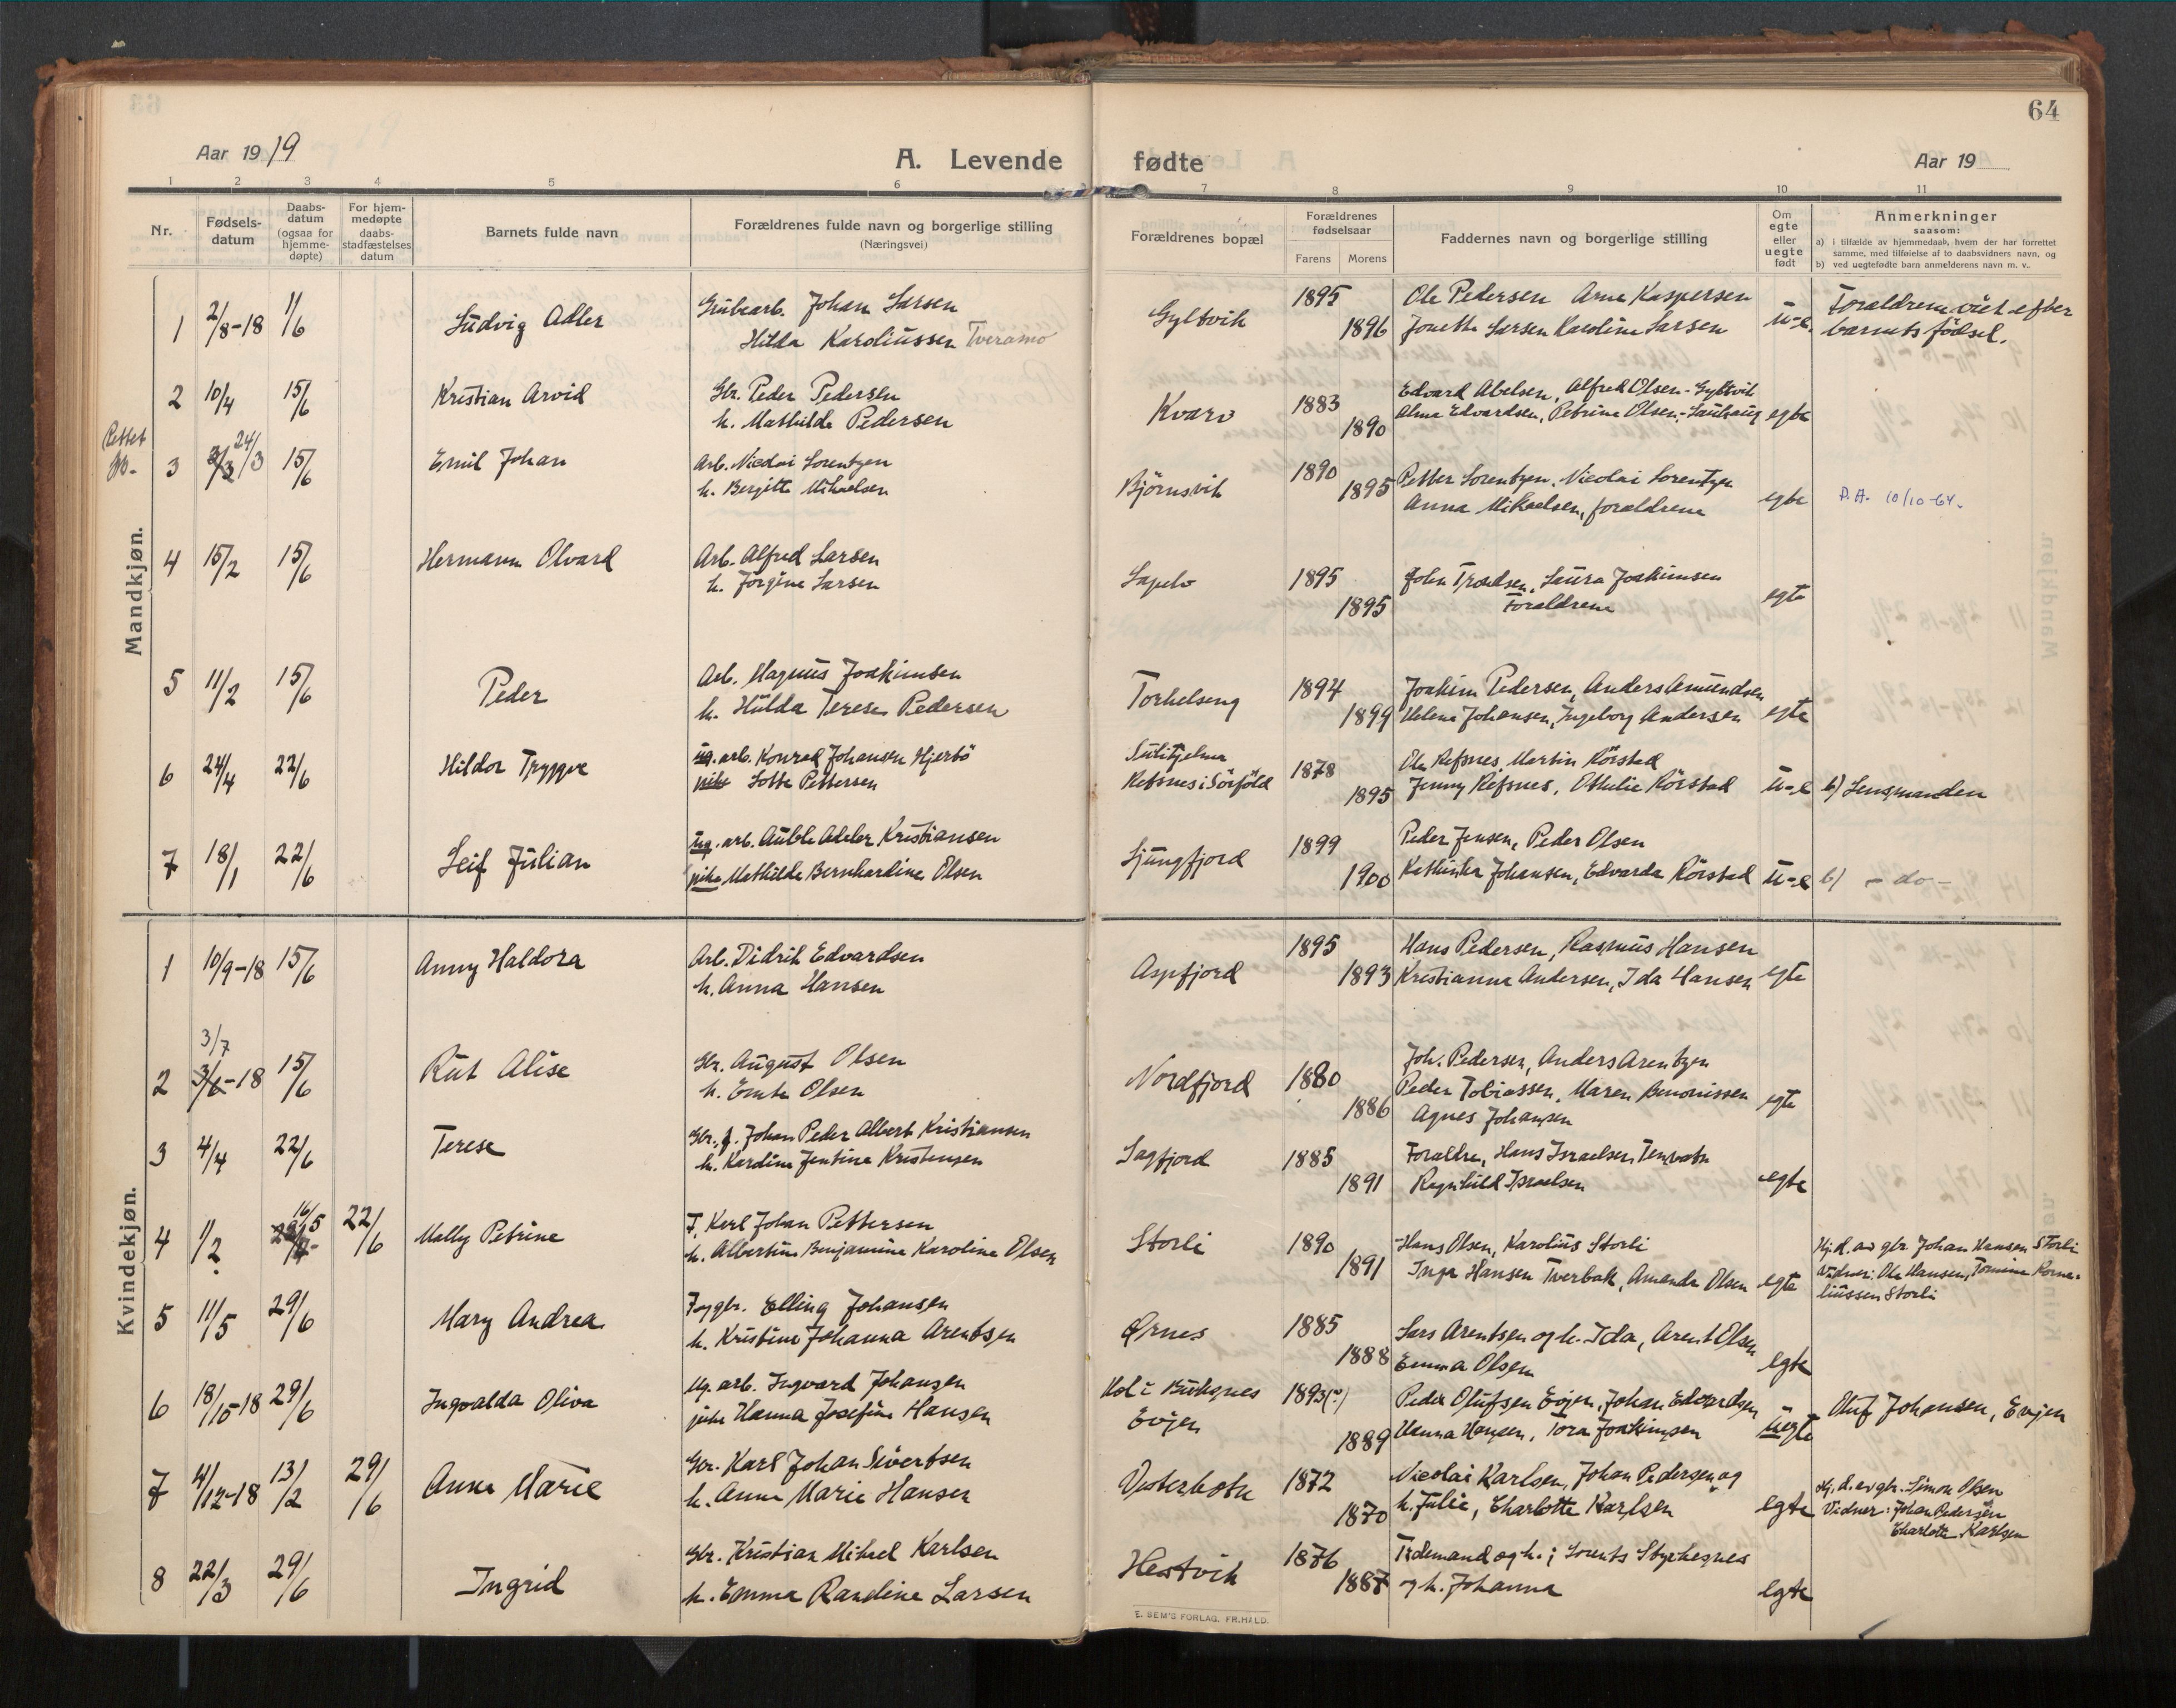 64
Aar 1919
A. Levende fødte
Aar 19
1 2 3 4 5 6 7 8 9 10 11
Nr.
Fødsels-
datum
Daabs-
datum
(ogsaa for
hjemme-
døpte)
For hjem-
medøpte
daabs-
stadfæstelses
datum
Barnets fulde navn
Forældrenes fulde navn og borgerlige stilling
(Næringsvei)
Forældrenes bopæl
Forældrenes
fødselsaar
Farens Morens
Faddernes navn og borgerlige stilling
Om
egte
eller
uegte
født
Anmerkninger
saasom:
a) i tilfælde av hjemmedaab, hvem der har forrettet
samme, med tilføielse af to daabsvidners navn, og
b) ved uegtefødte barn anmelderens navn m. v.
Mandkjøn.
1 2/8-18 11/6 Ludvig Adler
Grubearb. Johan Larsen
Hilda Karoliussen Tveråmo
Gyltvik 1895 1896
Ole Pedersen Arne Kaspersen
Jonette Larsen Karoline Larsen
u-e.
Forældrene viet efter
barnets fødsel.
2 10/4 15/6 Kristian Arvid
Gbr. Peder Pedersen
h. Mathilde Pedersen
Kvarv 1883 1890
Edvard Abelsen, Alfred Olsen - Gyltvik
Alma Edvardsen, Petrine Olsen,
egte
Rettet
3 24/3 15/6 Emil Johan
Arb. Nicolai Lorentzen
h. Bergitte Mikaelsen
Bjørnsvik 1890 1895
Petter Lorentzen, Nicolai Lorentzen
Anna Mikaelsen, forældrene
egte
D.A. 10/10-64.
4 15/2 15/6 Hermann Olvard
Arb. Alfred Larsen
h. Jørgine Larsen
1895 1895
John Trondsen, Laura Joakimsen
Forældrene
egte
5 11/2 15/6 Peder
Arb. Magnus Joakimsen
h. Hulda Terese Pedersen
Torkelseng 1894 1899
Joakim Pedersen, Anders Amundsen
Helena Johansen, Ingeborg Andersen
egte
6 24/4 22/6 Hildor Tryggve
ug. arb. Konrad Johansen Hjertö
pike Lotte Pettersen
Sulitjelma
Refsnes i Sörfold 1878 1895
Ole Refsnes, Martin Rörstad
Jenny Refsnes, Othilie Rörstad
u-e
b) Lensmanden
7 18/1 22/6 Leif Julian
ug. arb. Adeler Kristiansen
pike Mathilde Bernhardine Olsen
Ljungfjord 1899 1900
Peder Jensen, Peder Olsen
Kathinka Johansen, Edvarda Rörstad
u-e
b) - do -
Kvindekjøn.
1 10/9-18 15/6 Anny Haldora
Arb. Didrik Edvardsen
h. Anna Hansen
Aspfjord 1895 1893
Hans Pedersen, Rasmus Hansen
Kristianna Andersen, Ida Hansen
egte
3/7
2 3/6-18 15/6 Rut Alise
Gbr. August Olsen
h. Olsen
Nordfjord 1880 1886
Joh. Pedersen, Anders Arentzen
Peder Tobiassen, Maren Benonissen
Agnes Johansen
egte
3 4/4 22/6 Terese
Gbr. f. Johan Peder Albert Kristiansen
h. Kardine Jentine Kristensen
Sagfjord 1885 1891
Forældre, Hans Israelsen Tenvatn
Ragnhild Israelsen
egte
4 1/2 16/5 22/6 Mally Petrine
F. Karl Johan Pettersen
h. Albertine Benjamine Karoline Olsen
Storli 1890 1891
Hans Olsen, Karolius Storli
Inga Hansen Tverbak, Amanda Olsen
egte
Hj.d. av gbr. Johan Hansen Storli
vidner: Ole Hansen, Tomine Korne-
liussen Storli
5 11/5 29/6 Mary Andrea
F og gbr. Elling Johansen
h. Kristine Johanna Arentsen
Ørnes 1885 1888
Lars Arentsen og h. Ida, Arent Olsen
Emma Olsen
egte
6 18/10-18 29/6 Ingvalda Oliva
Ug. arb. Ingvard Johansen
pike Hanna Josefine Hansen
Hol i Buksnes
Evjen 1893(?) 1889
Peder Olufsen Evjen, Johan Edvardsen
Hanna Hansen, Tora Joakimsen
uegte
Oluf Johansen, Evjen
7 4/12-18 13/2 29/6 Anna Marie
Gbr. Karl Johan Sivertsen
h. Anna Marie Hansen
Vesterbotn 1872 1870
Nicolai Karlsen, Johan Pedersen og
h. Julie, Charlotte Karlsen
egte
Hj. d. av gbr. Simon Olsen
Vidner: Johan Pedersen
Charlotte Karlsen
8 22/3 29/6 Ingrid
Gbr. Kristian Mikael Karlsen
h. Emma Randine Larsen
Hestvik 1876 1887
Tidemand og h.; Lorents Styrkesnes
og h. Johanna
egte
E. SEM'S FORLAG, FR.HALD.